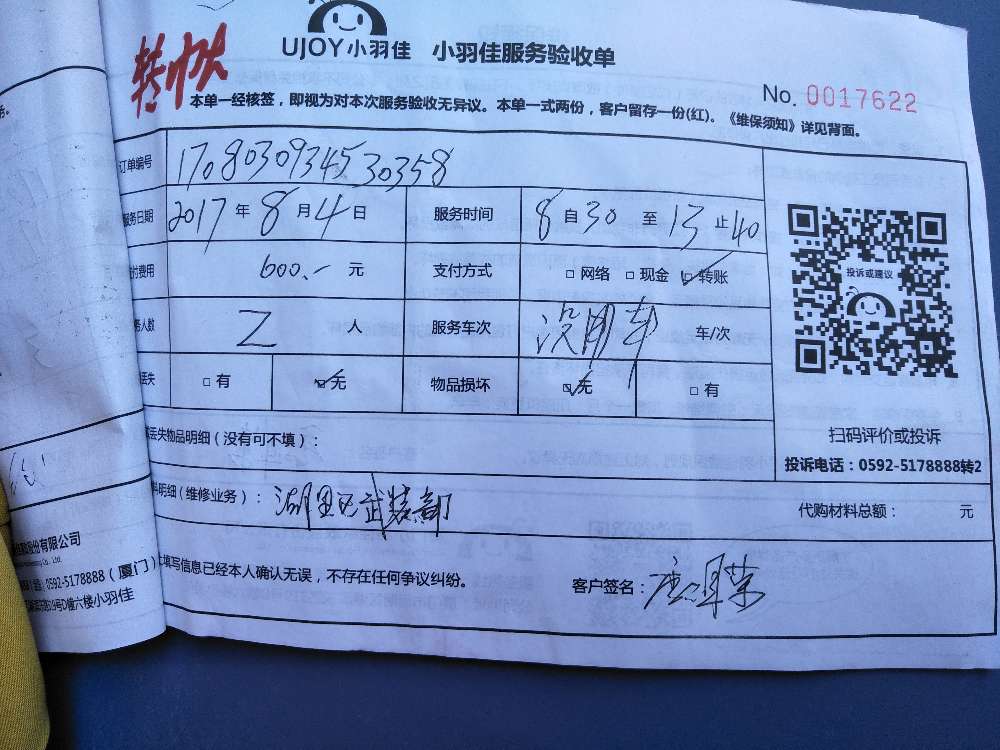 UJOY小羽佳 小羽佳服务验收单
No. 0017622
本单一经核签，即视为对本次服务验收无异议。本单一式两份，客户留存一份(红)。《维保须知》详见背面。
订单编号 17080309345530358
服务日期 2017年8月4日 服务时间 8自30至13止40
付费用 600.- 元 支付方式 □网络 □现金 ☑转账
务人数 2 人 服务车次 没用车 车/次
丢失 □有 ☑无 物品损坏 ☑无 □有
投诉或建议
扫码评价或投诉
投诉电话：0592-5178888转2
丢失物品明细（没有可不填）：
料明细（维修业务）：湖里区武装部 代购材料总额： 元
填写信息已经本人确认无误，不存在任何争议纠纷。 客户签名：
股份有限公司
0592-5178888（厦门）
19号D幢六楼小羽佳